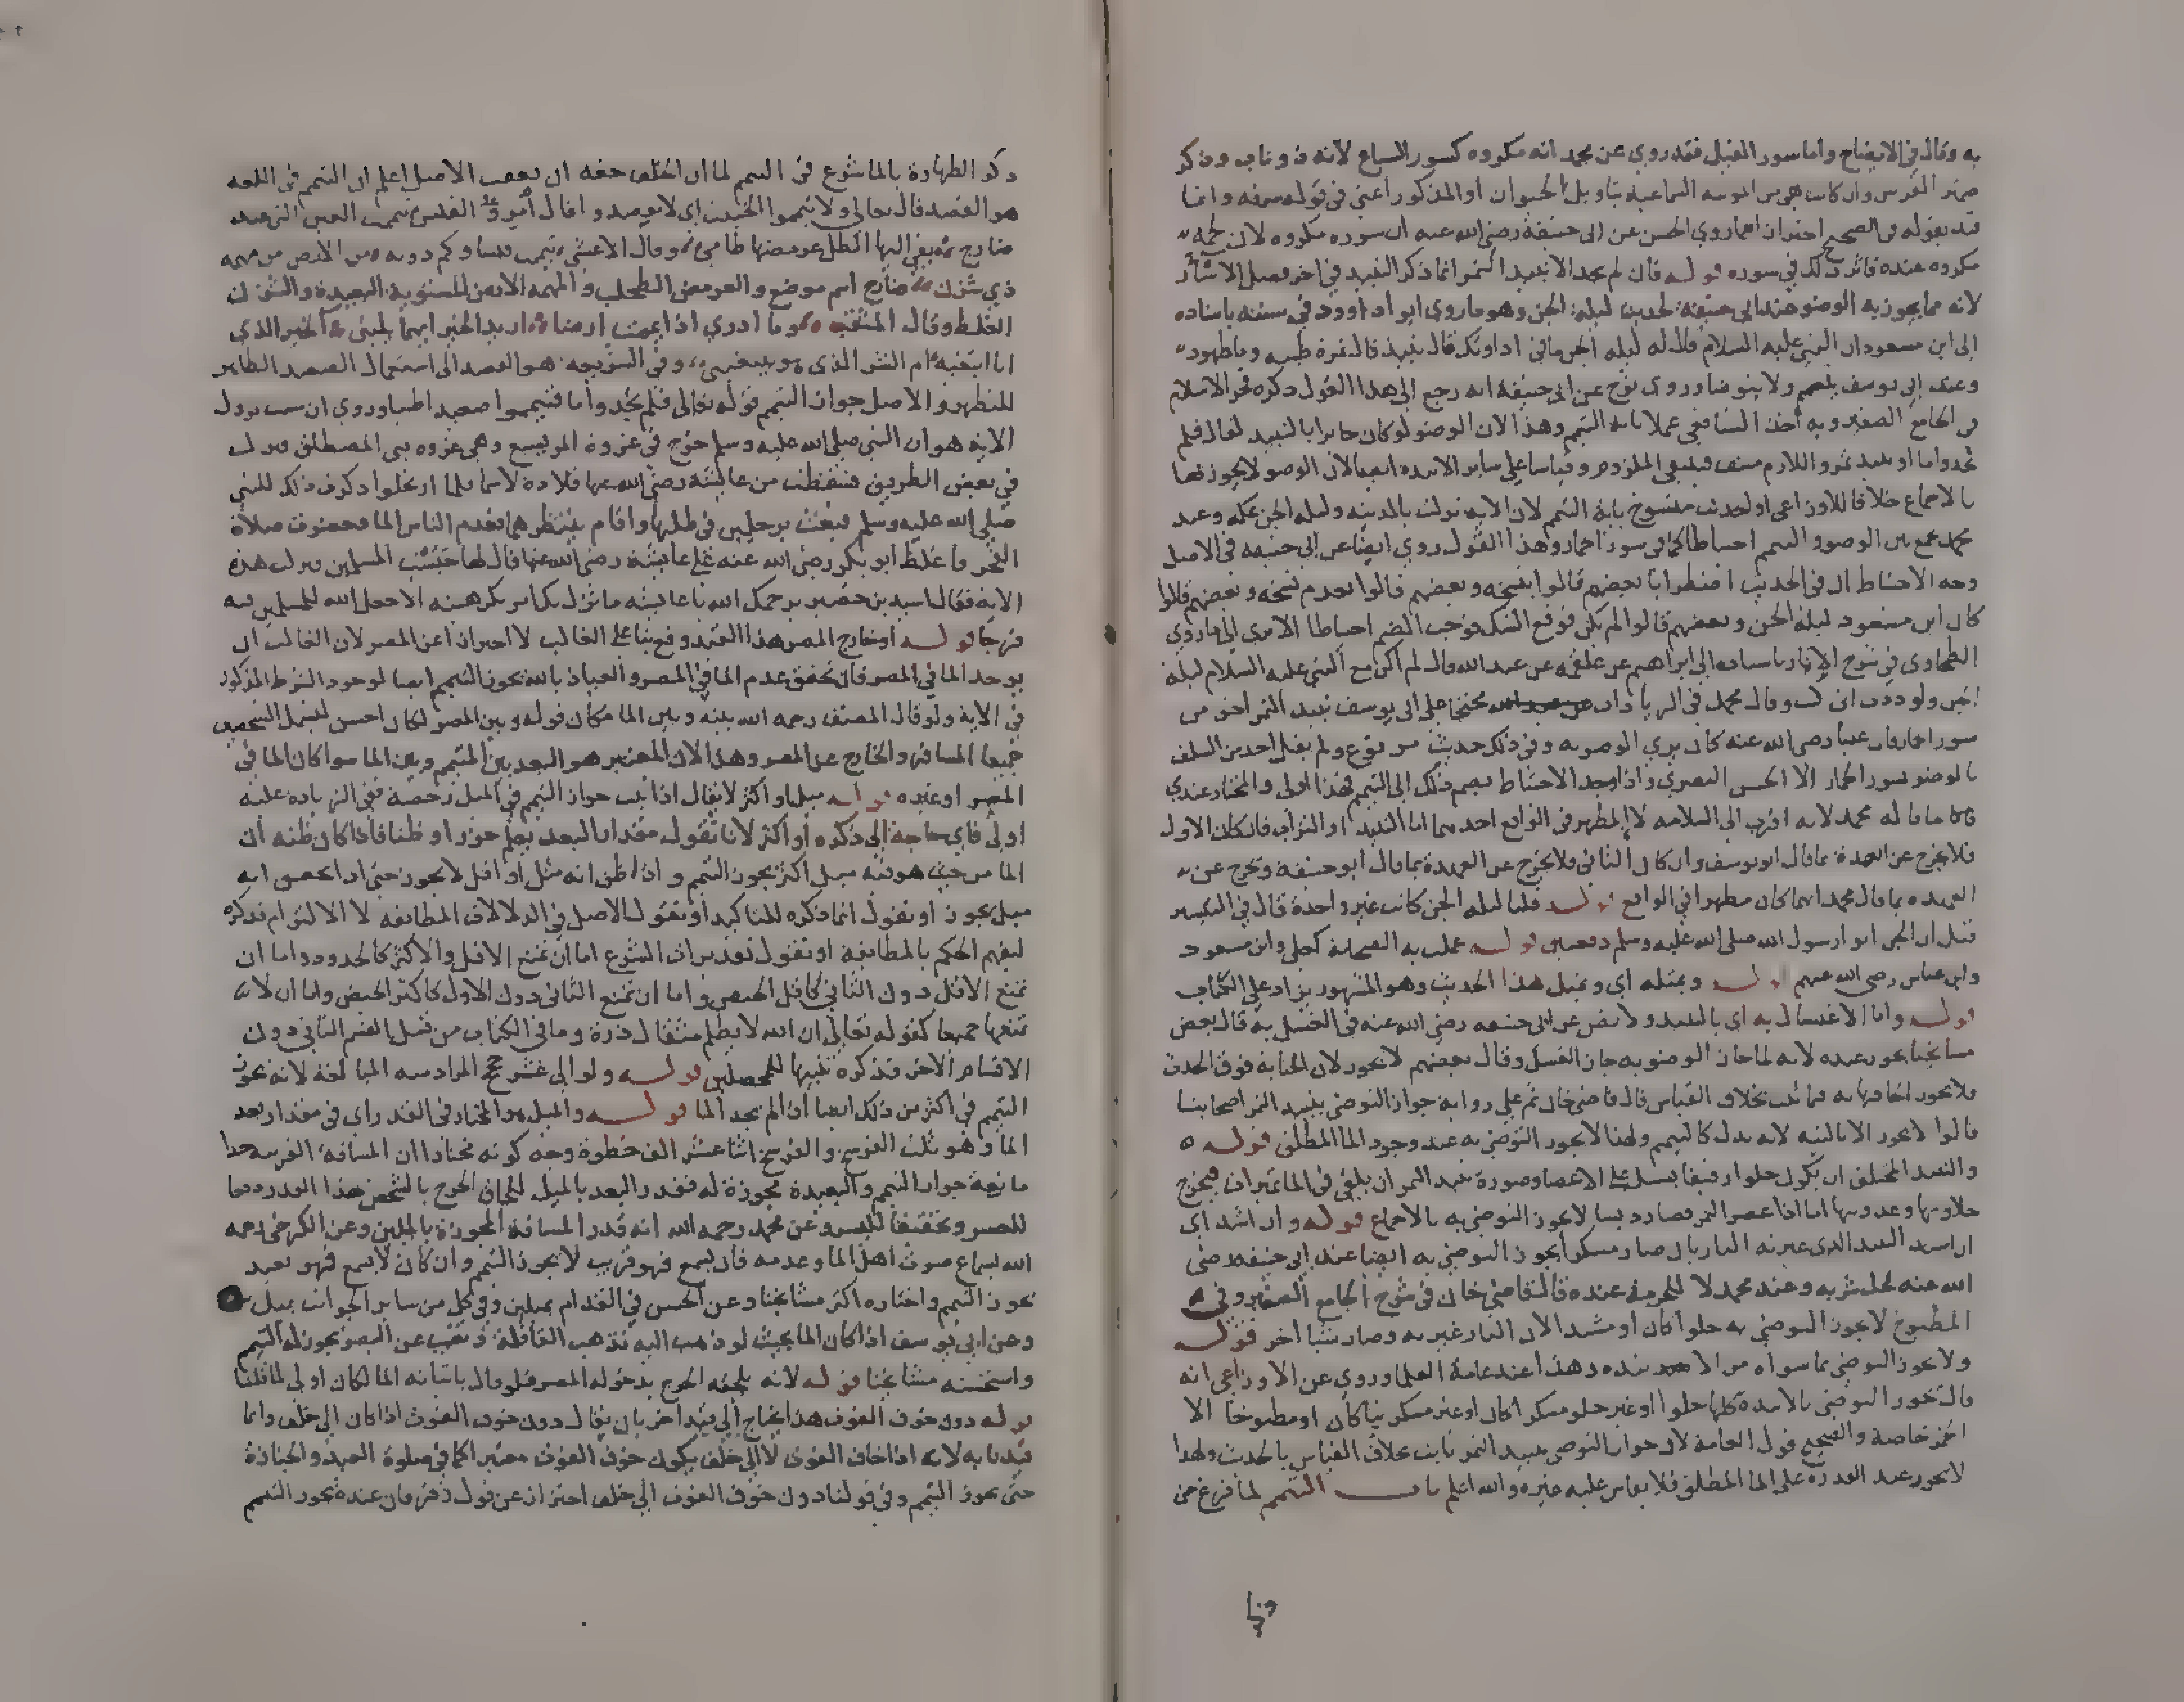 به وقال في الايضاح واما سور الفيل فقد روي عن محمد انه مكروه كسور السباع لانه ذو ناب وذكر
ضمير الفرس وان كانت هي من المونثه السماعيه بتاويل الحيوان او المذكور اعني في قوله سوره وانما
قيد بقوله في الصحيح احترازا عما روي الحسن عن ابي حنيفة رضي الله عنه ان سوره مكروه لان لحمه
مكروه عنده فاثر ذلك في سوره قوله فان لم يجد الا نبيذ التمر انما ذكر النبيذ في اخر فصل الاسآر
لانه مما يجوز به الوضو عند ابي حنيفة لحديث ليلة الجن وهو ما روي ابو داوود في سننه باسناده
الى ابن مسعود ان النبي عليه السلام قال له ليله الجن ما في اداوتك قال نبيذ قال تمرة طيبه وما طهور
وعند ابي يوسف يتيمم ولا يتوضا وروي نوح عن ابي حنيفة انه رجع الى هذا القول ذكره فخر الاسلام
في الجامع الصغير وبه اخذ الشافعي عملا بايه التيمم وهذا لان الوضو لو كان جايزا بالنبيذ لقال فلم
تجدوا ما او نبيذ تمر واللازم منتف فينتفي الملزوم وقياسا على ساير الانبذه ايضا لان الوضو لا يجوز بها
بالاجماع خلافا للاوزاعي او الحديث منسوخ باية التيمم لان الايه نزلت بالمدينه وليله الجن بمكه وعند
محمد يجمع بين الوضو والتيمم احتياطا كما في سور الحمار وهذا القول روي ايضا عن ابي حنيفه في الاصل
وجه الاحتياط ان في الحديث اضطرابا بعضهم قالوا بنسخه وبعضهم قالوا بعدم نسخه وبعضهم قالوا
كان ابن مسعود ليلة الجن وبعضهم قالوا لم يكن فوقع الشك فوجب الضم احتياطا الا تري الى ما روي
الطحاوي في شرح الاثار باسناده الى ابراهيم عن علقمه عن عبد الله قال لم اكن مع النبي عليه السلام ليلة
الجن ولوددت اني كنت وقال محمد في الزيادات محتجا على ابي يوسف نبيذ التمر احق من
سور الحمار فان عليا رضي الله عنه كان يري الوضو به وفي ذلك حديث مرفوع ولم يقل احد من السلف
بالوضو بسور الحمار الا الحسن البصري واذا وجد الاحتياط بضم ذلك الى التيمم فهذا اولى والمختار عندي
ما قاله محمد لانه اقرب الى السلامه لان المطهر في الواقع احدهما اما النبيذ او التراب فان كان الاول
فلا يخرج عن العهدة بما قال ابو يوسف وان كان الثاني فلا يخرج عن العهدة بما قال ابو حنيفة ويخرج عن
العهده بما قال محمد ايهما كان مطهرا في الواقع قوله قلنا ليله الجن كانت غير واحدة قال في التيسير
قيل ان الجن اتوا رسول الله صلى الله عليه وسلم دفعتين قوله عملت به الصحابة كعلي وابن مسعود
وابن عباس رضي الله عنهم قوله وبمثله اي وبمثل هذا الحديث وهو المشهور يزاد على الكتاب
قوله واما الاغتسال به اي بالنبيذ ولا نص عن ابي حنيفه رضي الله عنه في الغسل به قال بعض
مشايخنا يجوز عنده لانه لما جاز الوضو به جاز الغسل وقال بعضهم لا يجوز لان الجنابة فوق الحدث
فلا يجوز الحاقها به فيما ثبت بخلاف القياس قال قاضي خان ثم على رواية جواز التوضي بنبيذ التمر اصحابنا
قالوا لا يجوز الا بالنيه لانه بدل كالتيمم ولهذا لا يجوز التوضي به عند وجود الما المطلق قوله
والنبيذ المختلف ان يكون حلوا رقيقا يسيل على الاعضا وصورة نبيذ التمر ان يلقي في الما تميرات فيخرج
حلاوتها وعذوبتها اما اذا عصر التمر فصار دبسا لا يجوز التوضي به بالاجماع قوله وان اشتد اي
ان اشتد النبيذ الذي غيرته النار بان صار مسكرا يجوز التوضي به ايضا عند ابي حنيفه رضي
الله عنه لحل شربه وعند محمد لا للحرمة عنده قال قاضي خان في شرح الجامع الصغير وفي
المطبوخ لا يجوز التوضي به حلوا كان او مشتدا لان النار غيرته وصار شيئا اخر قوله
ولا يجوز التوضي بما سواه من الانبذه وهذا عند عامة العلما وروي عن الاوزاعي انه
قال يجوز التوضي بالانبذة كلها حلوا او غير حلو مسكرا كان او غير مسكر نيا كان او مطبوخا الا
الخمر خاصة والصحيح قول العامة لان جواز التوضي بنبيذ التمر ثابت بخلاف القياس بالحديث ولهذا
لا يجوز عند القدرة على الما المطلق فلا يقاس عليه غيره والله اعلم باب التيمم لما فرغ من
ذكر الطهارة بالما شرع في التيمم لما ان الخلف حقه ان يعقب الاصل اعلم ان التيمم في اللغه
هو القصد قال تعالى ولا تيمموا الخبيث اي لا تقصدوا قال امرؤ القيس تيممت العين التي عند
ضارج يفي اليها الظل عرمضها طامي وقال الاعشي تيممت قيسا وكم دونه من الارض من مهمه
ذي شزن ضارج اسم موضع والعرمض الطحلب والمهمه الارض المستوية البعيدة والشزن
الغلظ وقال المثقب وما ادري اذا يممت ارضا اريد الخير ايهما يليني االخير الذي
انا ابتغيه ام الشر الذي هو يبتغيني وفي الشريعه هو القصد الى استعمال الصعيد الطاهر
للتطهير والاصل جواز التيمم قوله تعالى فلم تجدوا ما فتيمموا صعيدا طيبا وروي ان سبب نزول
الاية هو ان النبي صلى الله عليه وسلم خرج في غزوة المريسيع وهي غزوه بني المصطلق فنزلت
في بعض الطريق فسقطت من عايشة رضي الله عنها قلادة لاسما فلما ارتحلوا ذكرت ذلك للنبي
صلى الله عليه وسلم فبعث برجلين في طلبها واقام ينتظرهما فعدم الناس الما فحضرت صلاة
الفجر فاغلظ ابو بكر رضي الله عنه على عايشة رضي الله عنها قال لها حبست المسلمين فنزلت هذه
الاية فقال اسيد بن حضير يرحمك الله يا عايشه ما نزل بك امر تكرهينه الا جعل الله للمسلمين فيه
فرجا قوله او خارج المصر هذا القيد وقع بنا على الغالب لا احترازا عن المصر لان الغالب ان
يوجد الما في المصر فان تحقق عدم الما في المصر والعياذ بالله يجوز التيمم ايضا لوجود الشرط المذكور
في الاية ولو قال المصنف رحمه الله بينه وبين الما مكان قوله وبين المصر لكان احسن ليشمل الشخصين
جميعا المسافر والخارج عن المصر وهذا لان المعتبر هو البعد بين المتيمم وبين الما سوا كان الما في
المصر او غيره قوله ميل او اكثر لا يقال اذا ثبت جواز التيمم في الميل رخصة ففي الزيادة عليه
اولى فاي حاجة الى ذكره او اكثر لانا نقول مقدار البعد يعلم حزرا وظنا فاذا كان ظنه ان
الما من حيث هو فيه ميل اكثر يجوز التيمم واذا ظن انه مثل او اقل لا يجوز حتى اذا تحقق انه
ميل يجوز او نقول انما ذكره للتاكيد او نقول الاصل في الدلالات المطابقه لا الالتزام فذكره
ليفهم الحكم بالمطابقة او نقول تقديرات الشرع اما ان تمنع الاقل والاكثر كالحدود واما ان
تمنع الاقل دون الثاني كاقل الحيض واما ان تمنع الثاني دون الاول كاكثر الحيض واما ان لا
تمنعهما جميعا كقوله تعالى ان الله لا يظلم مثقال ذرة وما في الكتاب من قبيل القسم الثاني دون
الاقسام الاخر فذكره تنبيها للمحصلين قوله ولو الى عشر حجج المراد منه المبالغة لانه يجوز
التيمم في اكثر من ذلك ايضا اذا لم يجد الما قوله والميل هو المختار في القدر اي في مقدار بعد
الما وهو ثلث الفرسخ والفرسخ اثنا عشر الف خطوة وجه كونه مختارا ان المسافة القريبه جدا
مانعة جواز التيمم والبعيدة مجوزة له فقدر البعد بالميل للحاق الحرج بالشخص هذا القدر دفعا
للعسر وتحقيقا لليسر وعن محمد رحمه الله انه قدر المسافة المجوزة بالميلين وعن الكرخي رحمه
الله بسماع صوت اهل الما وعدمه فان يسمع فهو قريب لا يجوز التيمم وان كان لا يسمع فهو بعيد
يجوز التيمم واختاره اكثر مشايخنا وعن الحسن في القدام بميلين وفي كل من ساير الجوانب بميل
وعن ابي يوسف اذا كان الما بحيث لو ذهب اليه تذهب القافلة وتغيب عن البصر يجوز له التيمم
واستحسنه مشايخنا قوله لانه يلحقه الحرج بدخوله المصر فلو قال باتيانه الما لكان اولى لما قلنا
قوله دون خوف الفوت هذا يحتاج الى قيد اخر بان يقال دون خوف الفوت اذا كان الى خلف وانما
قيدنا به لانه اذا خاف الفوت لا الى خلف يكون خوف الفوت معتبرا كما في صلوة العيد والجنازة
حتى يجوز التيمم وفي قولنا دون خوف الفوت الى خلف احتراز عن قول زفر فان عنده يجوز التيمم